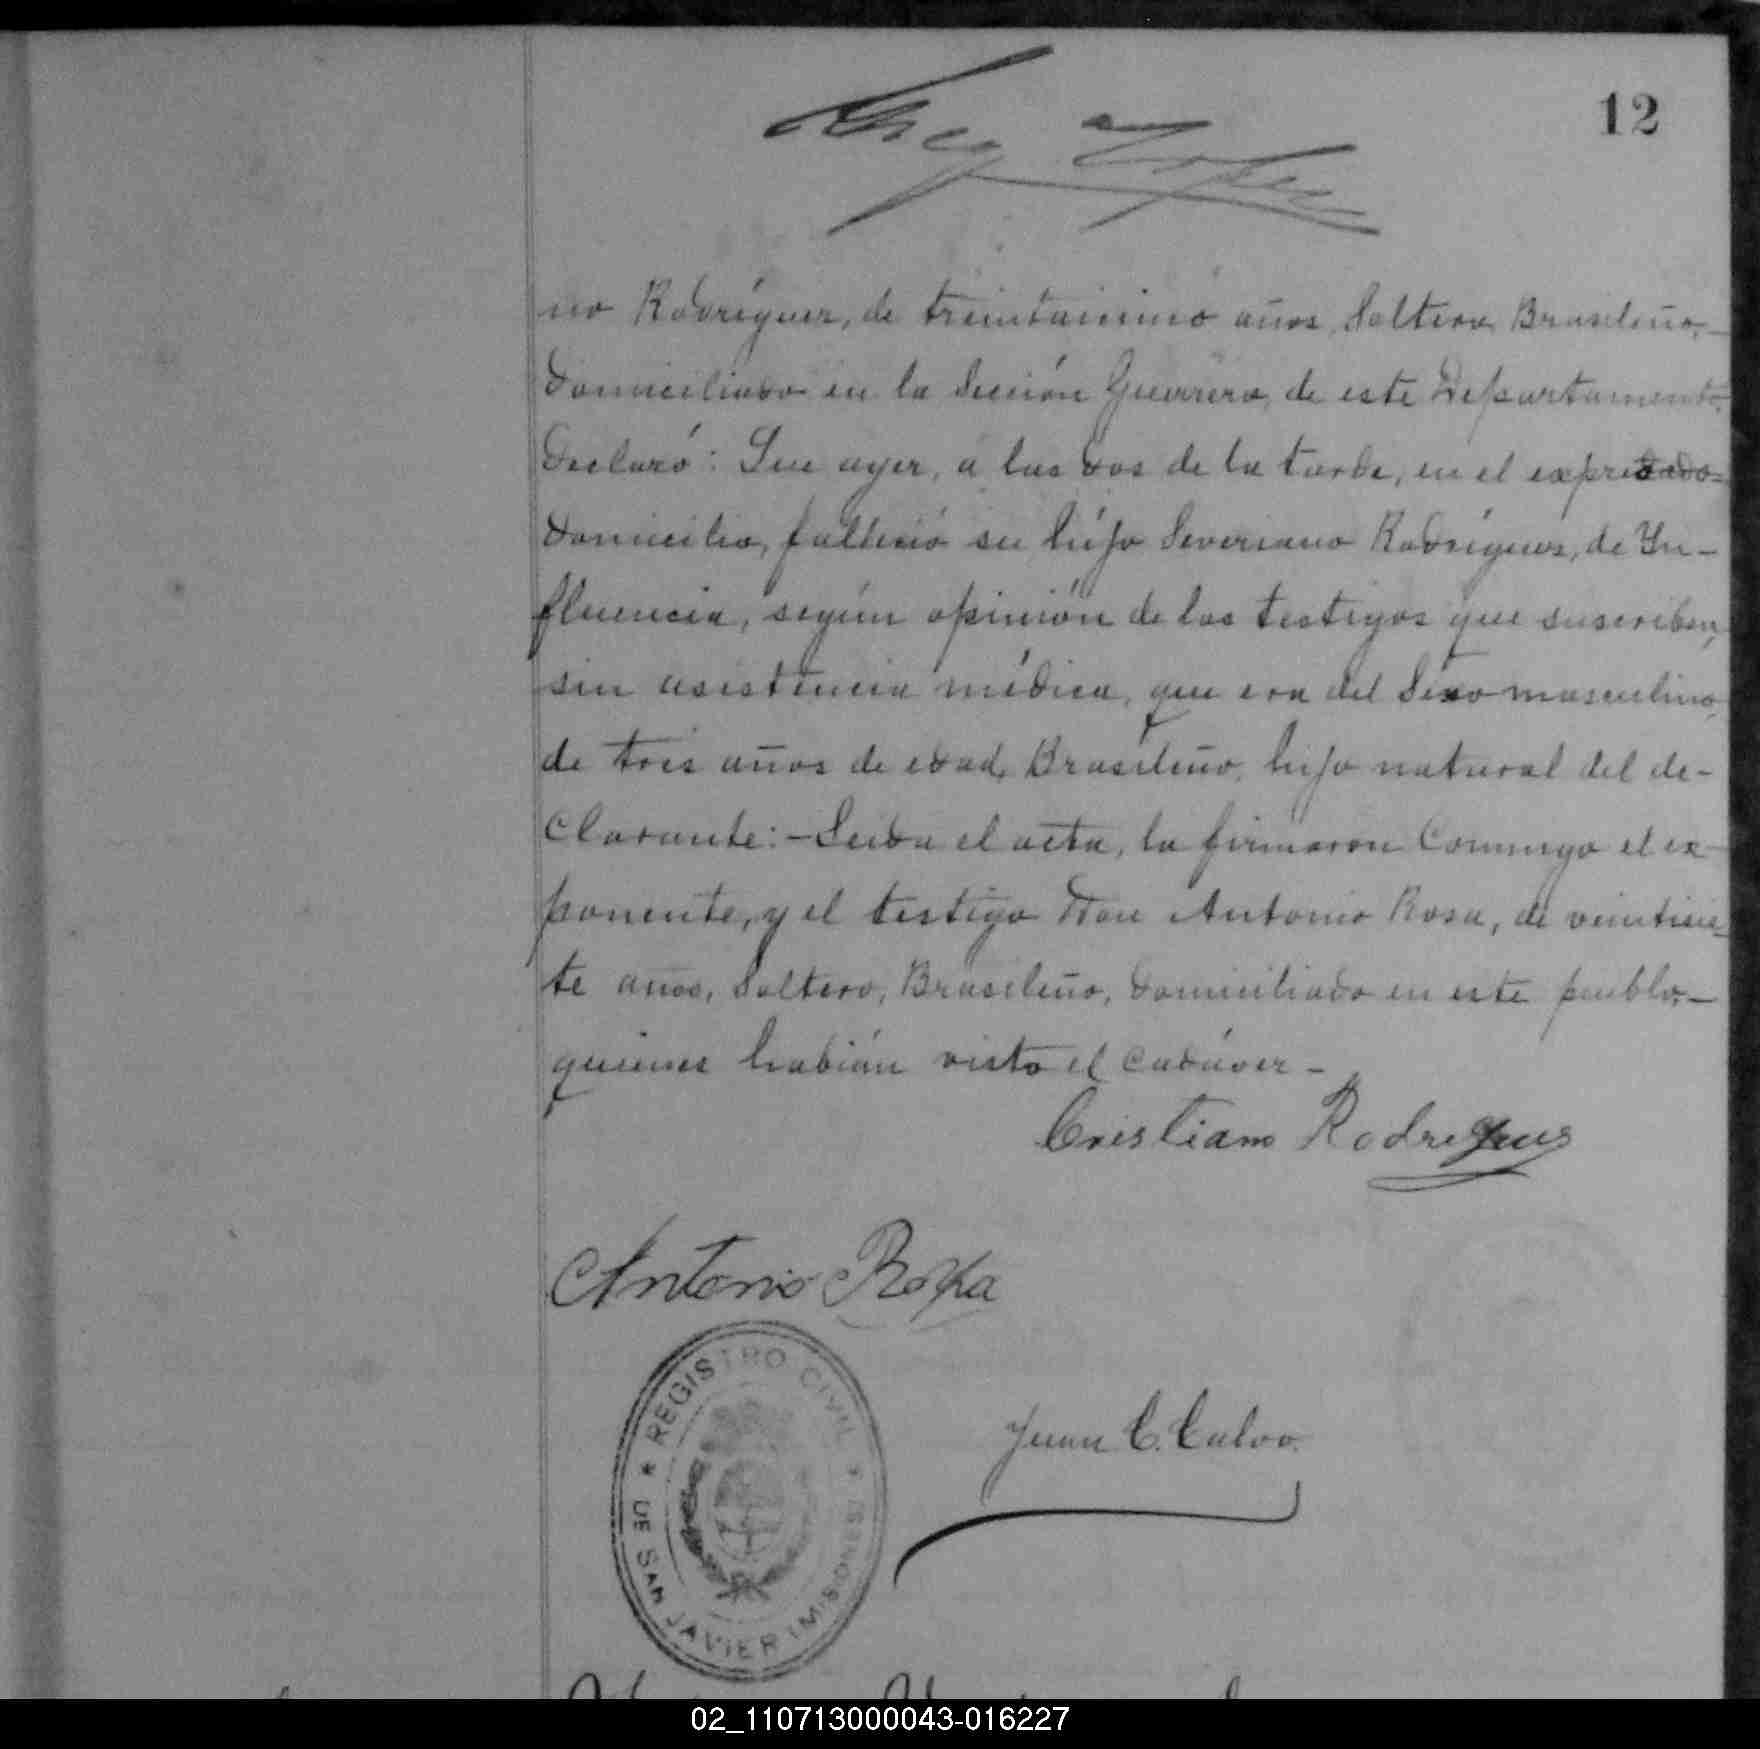 12
no Rodríguez, de treintaiuno años, Soltero, Brasileño,-
domiciliado en la Sección Guerrero, de este Departamento,
declaró: Que ayer, a las dos de la tarde, en el expresado-
domicilio, falleció su hijo Severiano Rodríguez, de In-
fluencia, según opinión de los testigos que suscriben,
sin asistencia médica, que era del Sexo masculino,
de tres años de edad, Brasileño, hijo natural del de-
Clarante:-Leída el acta, la firmaron Conmigo el ex-
ponente, y el testigo Don Antonio Rosa, de veintisie-
te años, Soltero, Brasileño, domiciliado en este pueblo,-
quienes habían visto el Cadáver-
Cristiano Rodrigues
Antonio Roza
REGISTRO CIVIL
DE SAN JAVIER (MISIONES)
Juan C. Calvo.
02_110713000043-016227